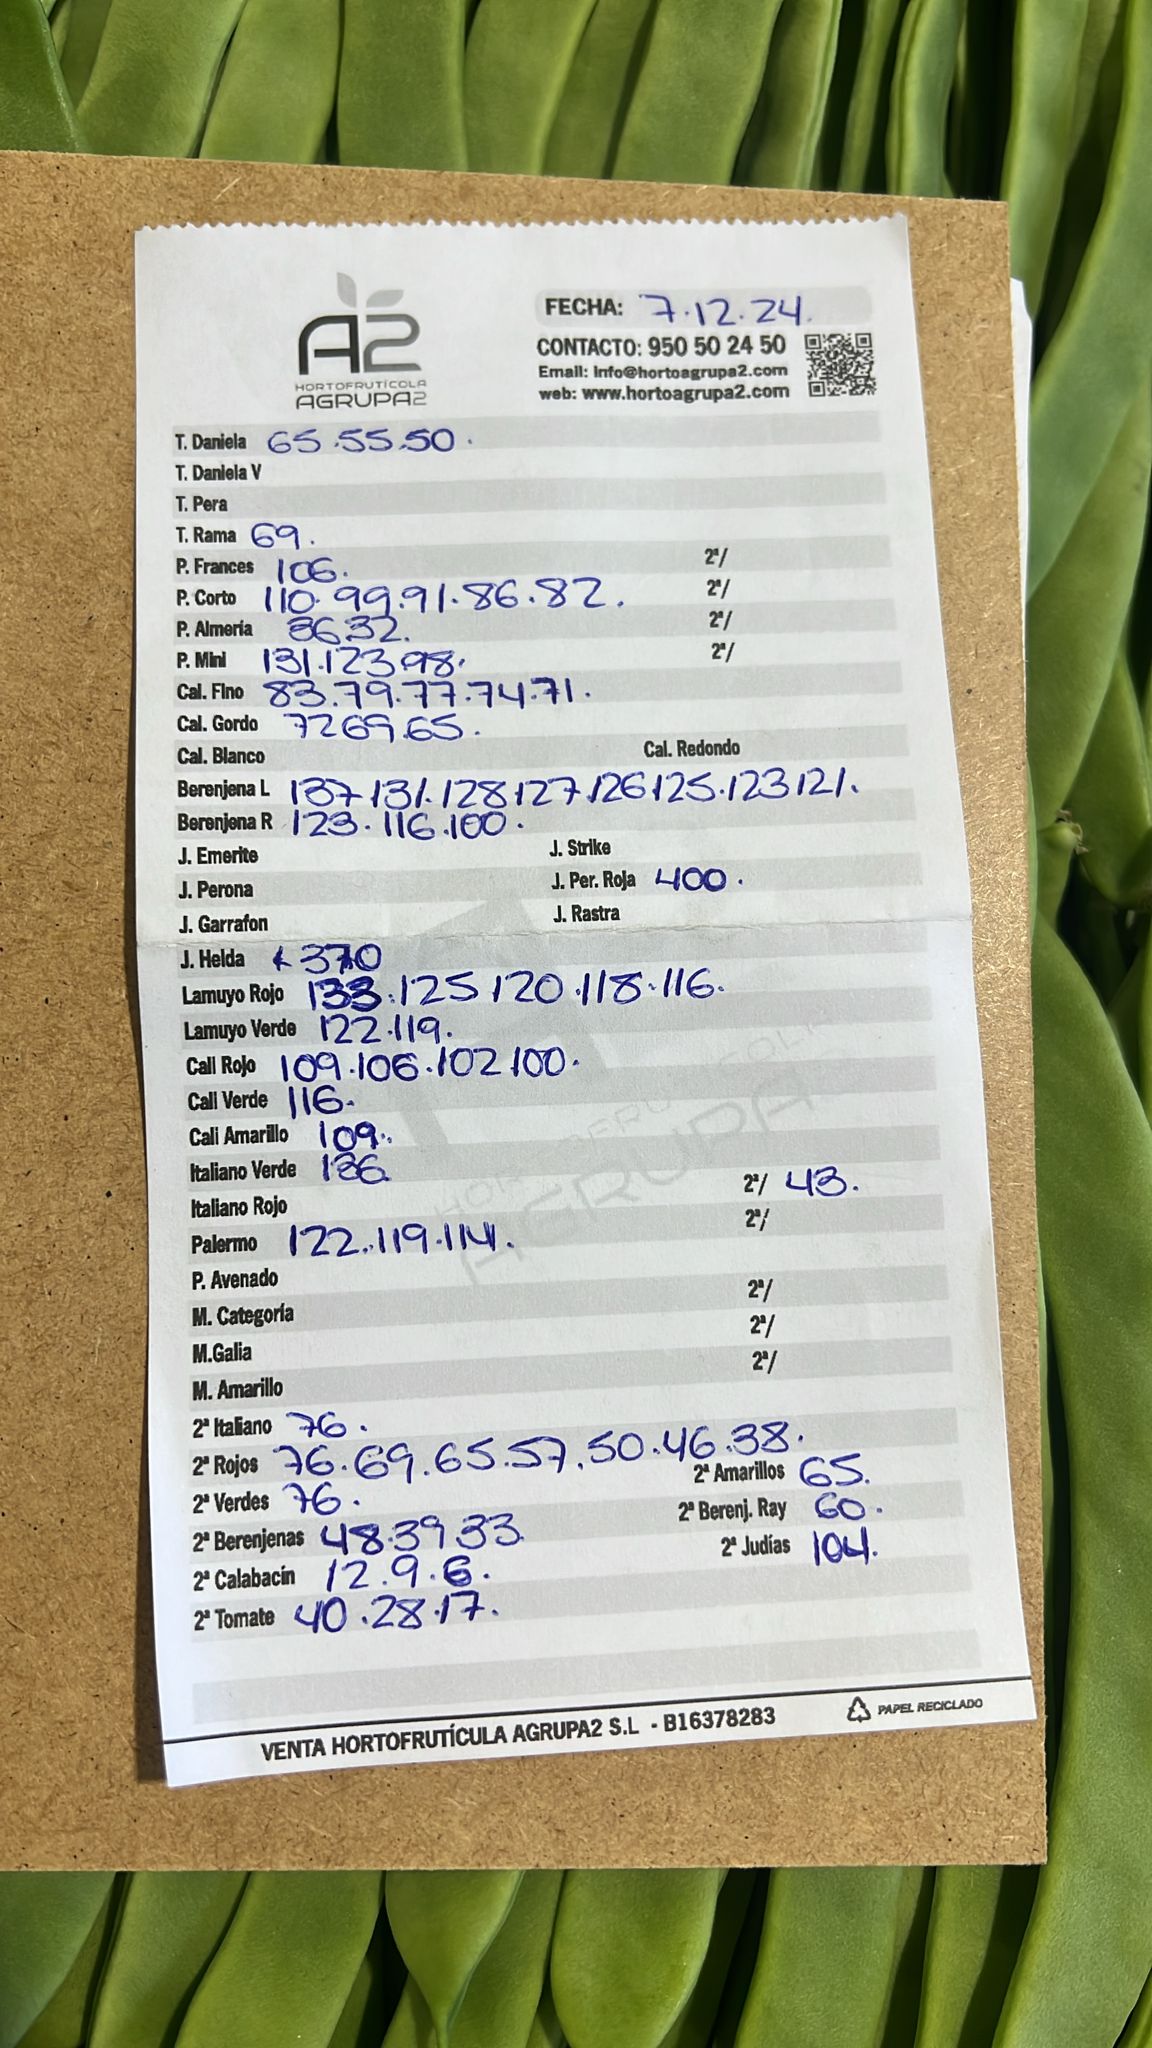 A2
HORTOFRUTÍCOLA
AGRUPA2
FECHA: 7.12.24.
CONTACTO: 950 50 24 50
Email: info@hortoagrupa2.com
web: www.hortoagrupa2.com
T. Daniela 65.55.50.
T. Daniela V
T. Pera
T. Rama 69.
P. Frances 106. 2ª/
P. Corto 110.99.91.86.82. 2ª/
P. Almería 36.32. 2ª/
P. Mini 131.123.98. 2ª/
Cal. Fino 83.79.77.74.71.
Cal. Gordo 72 69.65.
Cal. Blanco Cal. Redondo
Berenjena L 137.131.128.127.126.125.123.121.
Berenjena R 123.116.100.
J. Emerite J. Strike
J. Perona J. Per. Roja 400.
J. Garrafon J. Rastra
J. Helda 370
Lamuyo Rojo 133.125.120.118.116.
Lamuyo Verde 122.119.
Cali Rojo 109.106.102.100.
Cali Verde 116.
Cali Amarillo 109.
Italiano Verde 136.
Italiano Rojo 2ª/ 43.
Palermo 122.119.114. 2ª/
P. Avenado
M. Categoría 2ª/
M.Galia 2ª/
M. Amarillo 2ª/
2ª Italiano 76.
2ª Rojos 76.69.65.57.50.46.38.
2ª Amarillos 65.
2ª Verdes 76.
2ª Berenj. Ray 60.
2ª Berenjenas 48.39.33.
2ª Judías 104.
2ª Calabacín 12.9.6.
2ª Tomate 40.28.17.
PAPEL RECICLADO
VENTA HORTOFRUTÍCULA AGRUPA2 S.L - B16378283